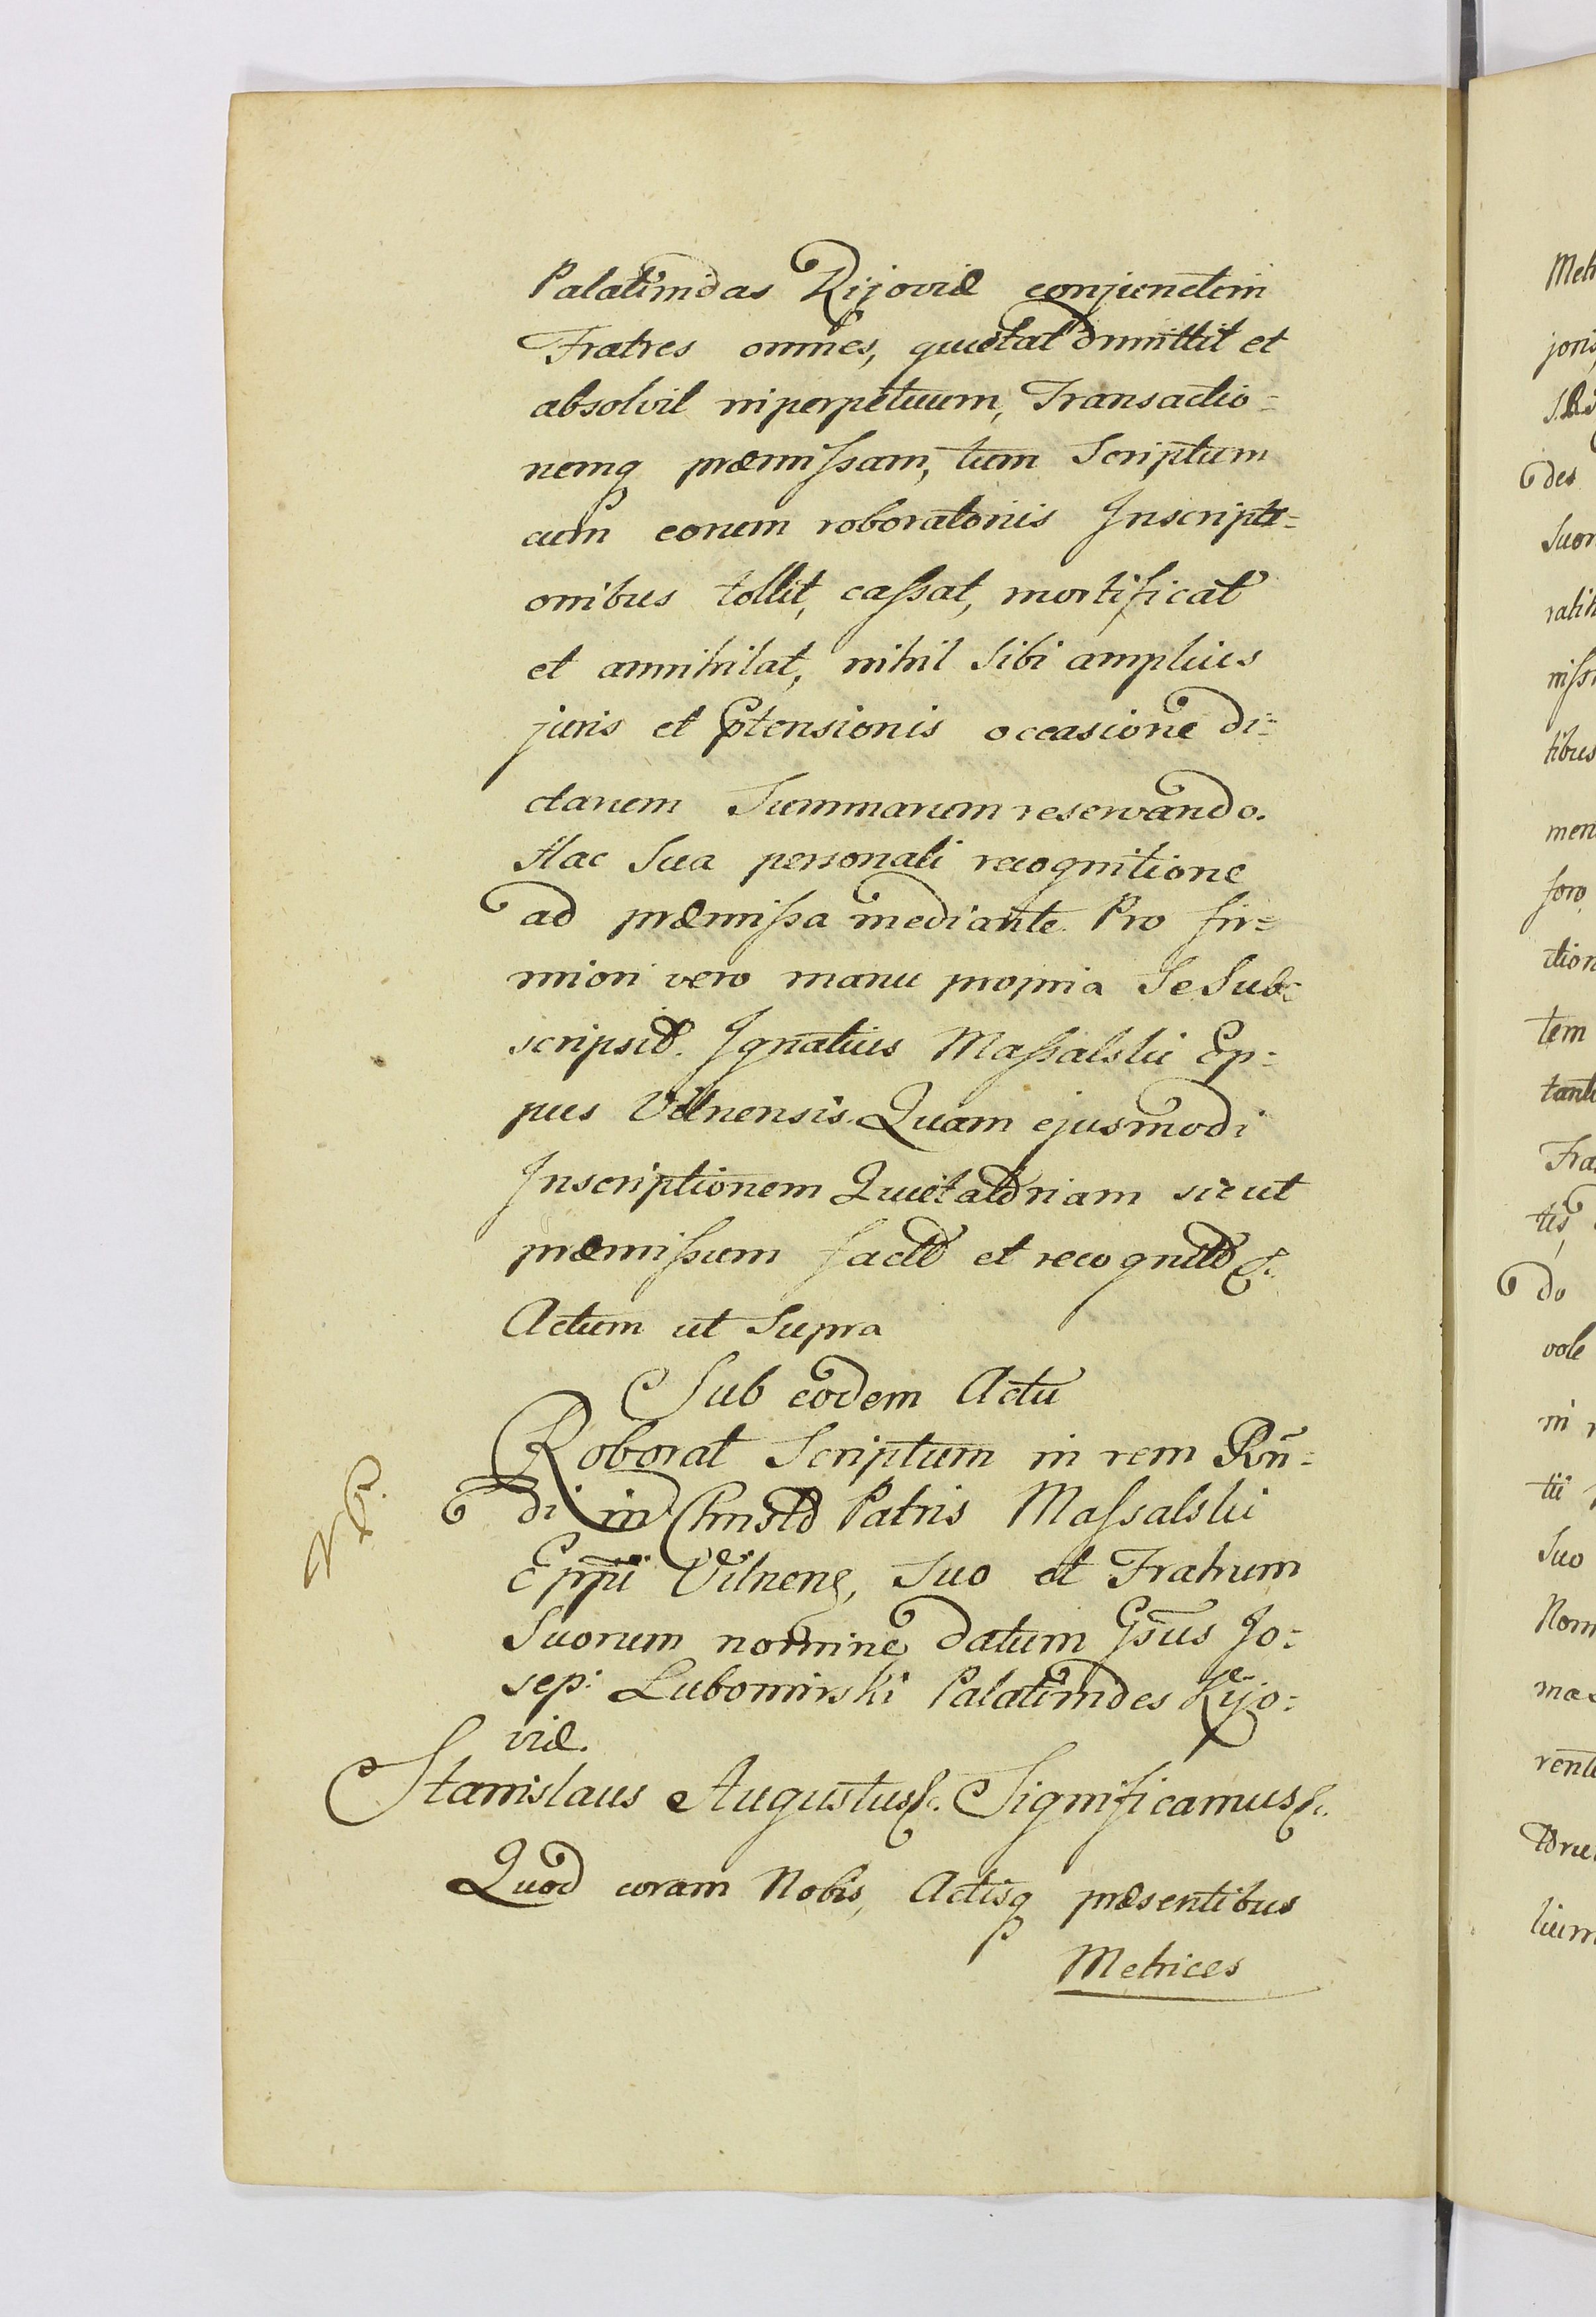 Palatinidas Kijoviæ conjunctim
Fratres omnes, quietat dimittit et
absolvit inperpetuum, Transactio=
nemq præmissam, tum Scriptum
cum eorum roboratoriis Inscripti=
onibus tollit, cassat, mortificat
et annihilat, nihil Sibi amplius
juris et Ptensionis occasione di=
ctarum Summarum reservando.
Hac Sua personali recognitione
ad præmissa mediante. Pro fir=
miori vero manu propria Se Sub=
scripsit. Ignatius Massalski Ep=
pus Vilnensis. Quam ejusmodi
Inscriptionem Quietatoriam sicut
præmissum facto et recognito &c.
Actum ut Supra
Sub eodem Actu
Roborat Scriptum in rem Rñ=
di in Christo Patris Massalski
N.P.
Eppi Vilnens, Suo et Fratrum
Suorum nomine datum Gsus Jo=
sep: Lubomirski Palatinides Kijo=
viæ.
Stanislaus Augustus &c. Significamus &c.
Quod coram Nobis, Actisq præsentibus
Metrices
des
tem
do
in
Suo